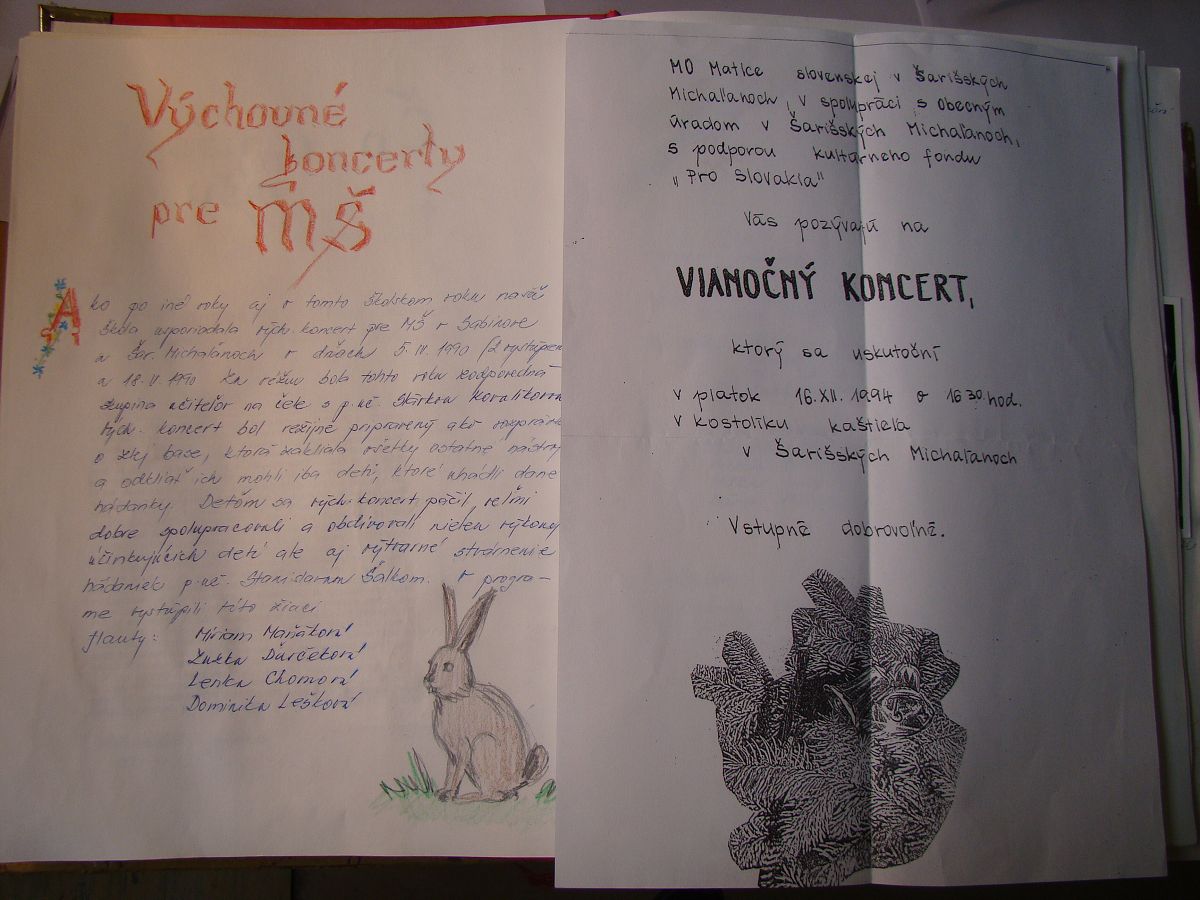 Výchovné
koncerty
pre MŠ
Ako po iné roky aj v tomto školskom roku naša
škola usporiadala vých. koncert pre MŠ v Sabinove
a Šar. Michaľanoch v dňoch 5. IV. 1990 (2 vystúpen
a 18. V. 1990 Za réžiu bola tohto roku zodpovedná
skupina učiteľov na čele s p. uč. Kovalíkovou
vých. koncert bol režijne pripravený ako rozpráv
o zlej base, ktorá zakliala všetky ostatné nástro
a odkliať ich mohli iba deti, ktoré uhádli dané
hádanky. Deťom sa vých. koncert páčil, veľmi
dobre spolupracovali a obdivovali nielen výkony
účinkujúcich detí ale aj výtvarné stvárnenie
hádaniek p. uč. Stanislavom Šalkom. V progra-
me vystúpili títo žiaci
flauty: Miriam Maňáková
Zuzka Ďurčeková
Lenka Chomová
Dominika Lešková
MO Matice slovenskej v Šarišských
Michaľanoch, v spolupráci s Obecným
úradom v Šarišských Michaľanoch,
s podporou kultúrneho fondu
„Pro Slovakia"
Vás pozývajú na
VIANOČNÝ KONCERT,
ktorý sa uskutoční
v piatok 16. XII. 1994 o 16 30 hod.
v kostolíku kaštieľa
v Šarišských Michaľanoch
Vstupné dobrovoľné.